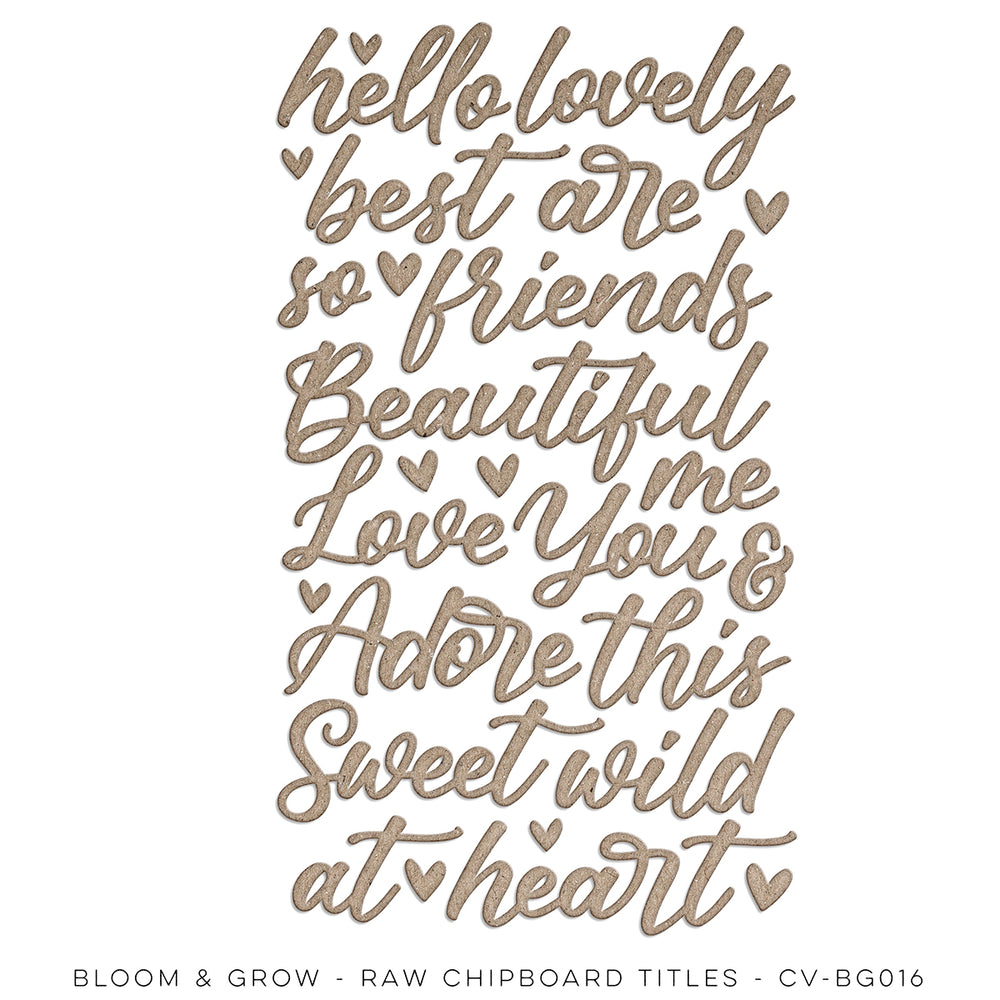 hello lovely
best are
so friends
Beautiful
me
Love You &
Adore this
Sweet wild
at heart
BLOOM & GROW - RAW CHIPBOARD TITLES - CV-BG016